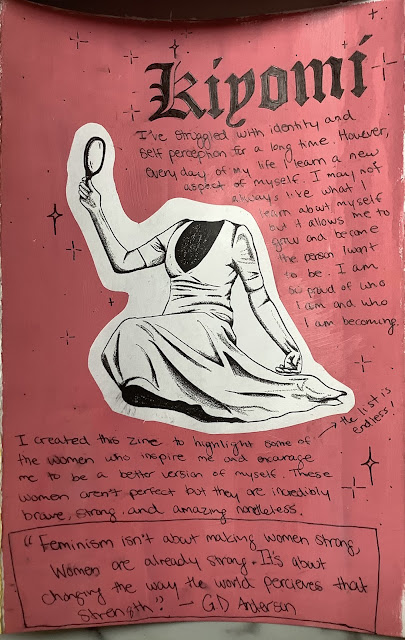 Kiyomi
I've struggled with identity and
self perception for a long time. However,
every day of my life I learn a new
aspect of myself. I may not
always like what I
learn about myself
but it allows me to
grow and become
the person I want
to be. I am
so proud of who
I am and who
I am becoming.
the list is
endless!
I created this zine to highlight some of
the women who inspire me and encourage
me to be a better version of myself. These
women aren't perfect but they are incredibly
brave, strong, and amazing nonetheless.
"Feminism isn't about making women strong,
Women are already strong. It's about
changing the way the world percieves that
strength." - G.D Anderson